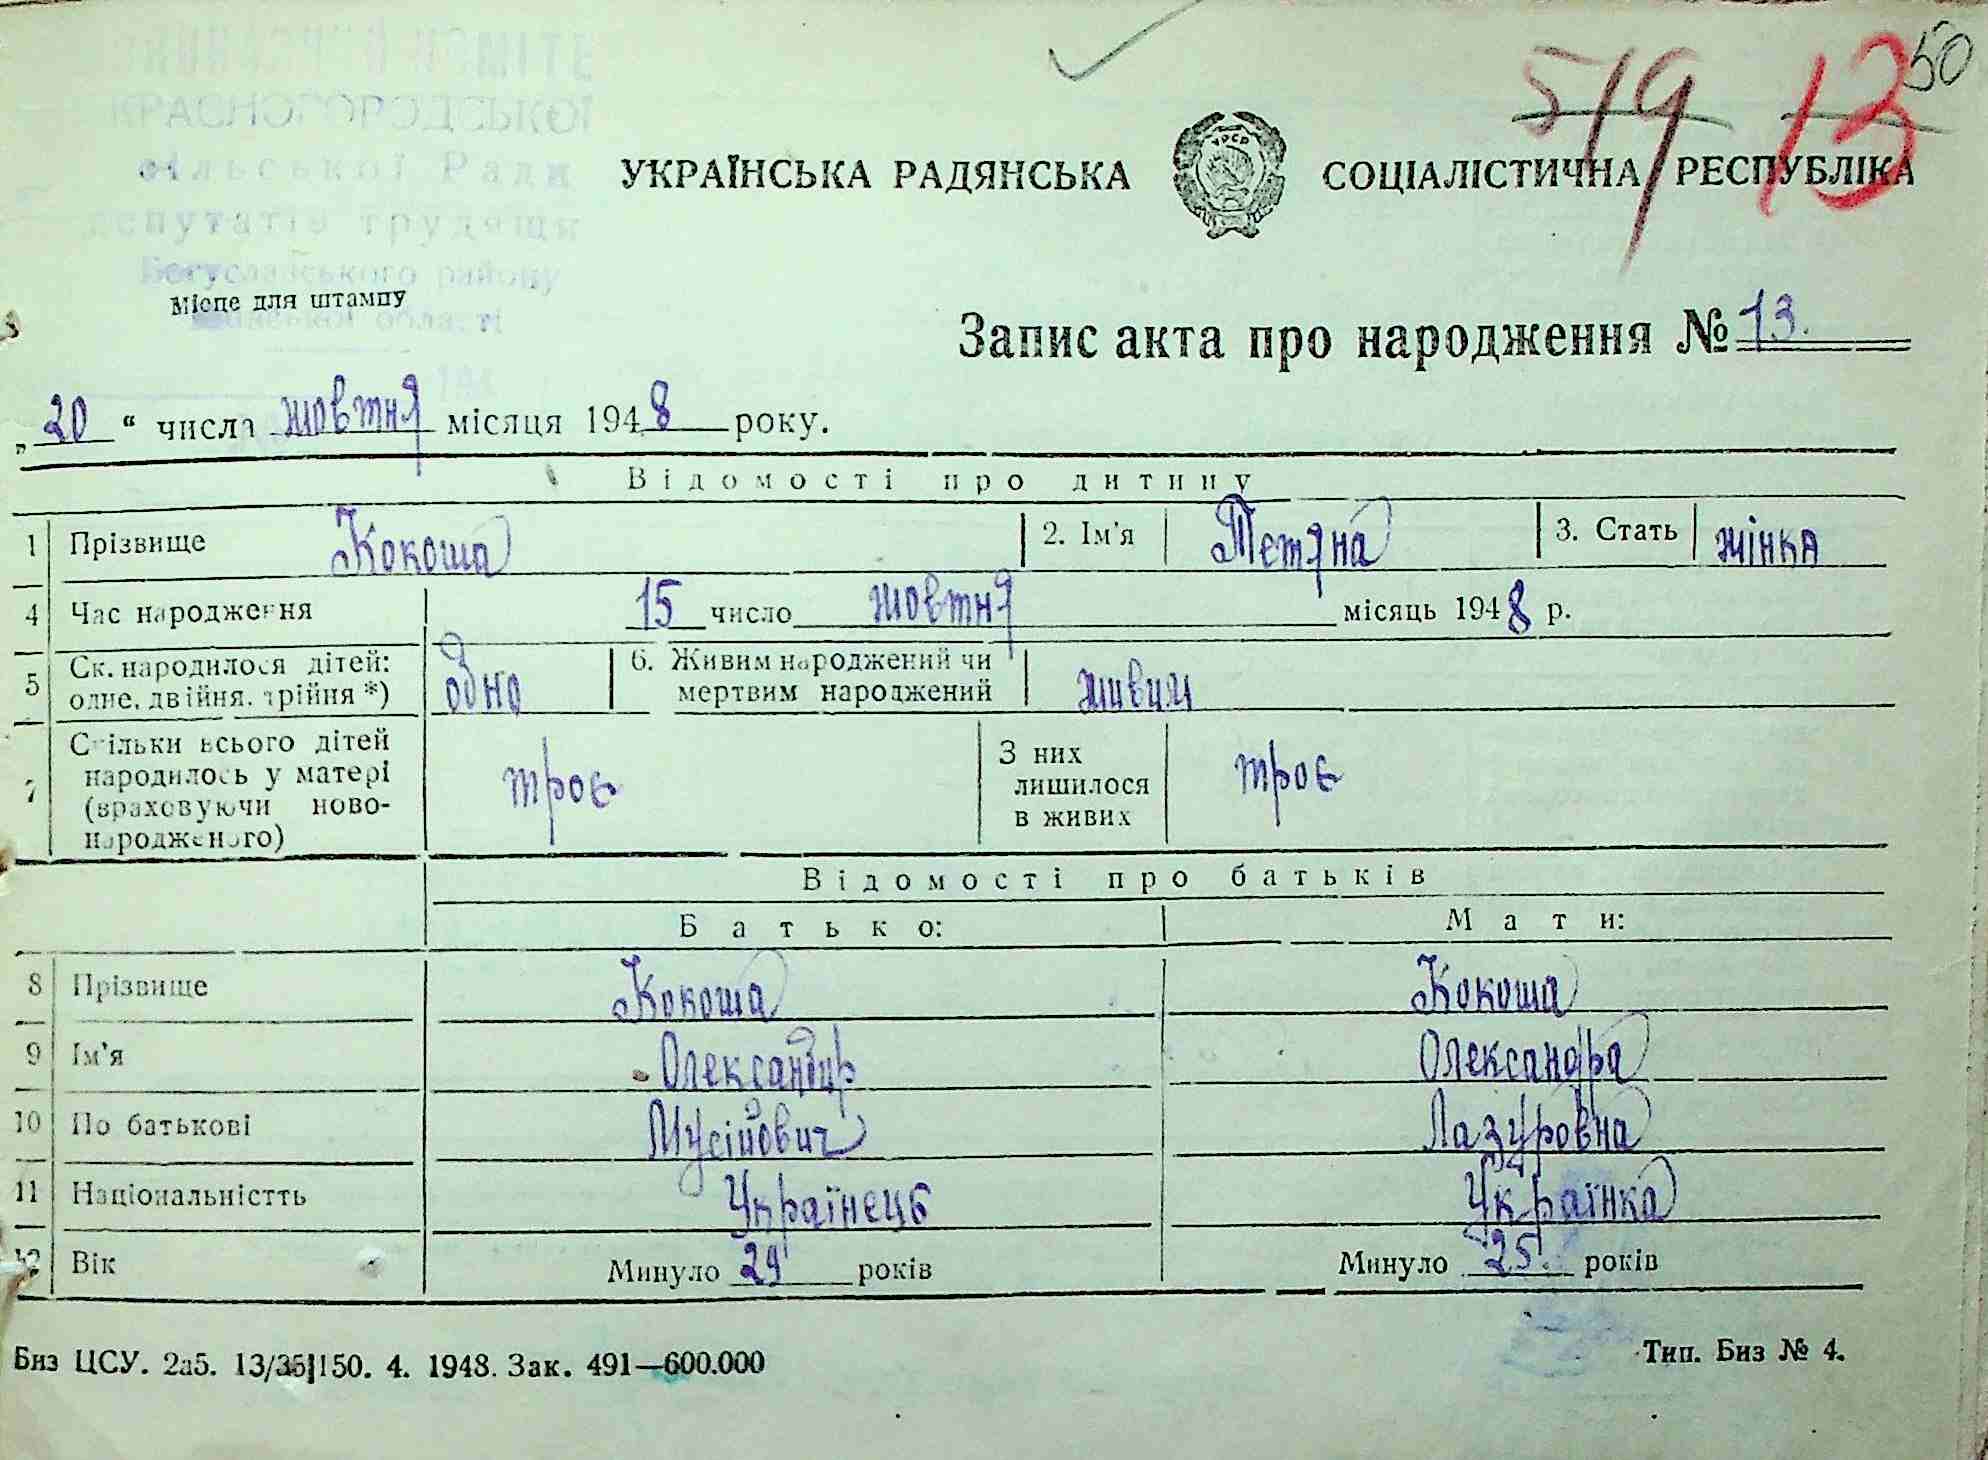 50
519 13
КРАСНОГОРОДСЬКОЇ
сільської Ради
депутатів трудящих
Богуславського району
області
УКРАЇНСЬКА РАДЯНСЬКА СОЦІАЛІСТИЧНА РЕСПУБЛІКА
УРСР
Місце для штампу
Запис акта про народження № 13.
„20“ числа жовтня місяця 1948 року.
Відомості про дитину
1 Прізвище Кокоша 2. Ім'я Тетяна 3. Стать жінка
4 Час народження 15 число жовтня місяць 1948 р.
5 Ск. народилося дітей: одне, двійня, трійня *) одно 6. Живим народжений чи мертвим народжений живим
7 Скільки всього дітей народилось у матері (враховуючи ново-народженого) троє З них лишилося в живих троє
Відомості про батьків
Батько: Мати:
8 Прізвище Кокоша Кокоша
9 Ім'я Олександир Олександра
10 По батькові Мусійович Лазуровна
11 Національністть Українець Українка
12 Вік Минуло 29 років Минуло 25. років
Биз ЦСУ. 2а5. 13/35|150. 4. 1948. Зак. 491—600.000 Тип. Биз № 4.